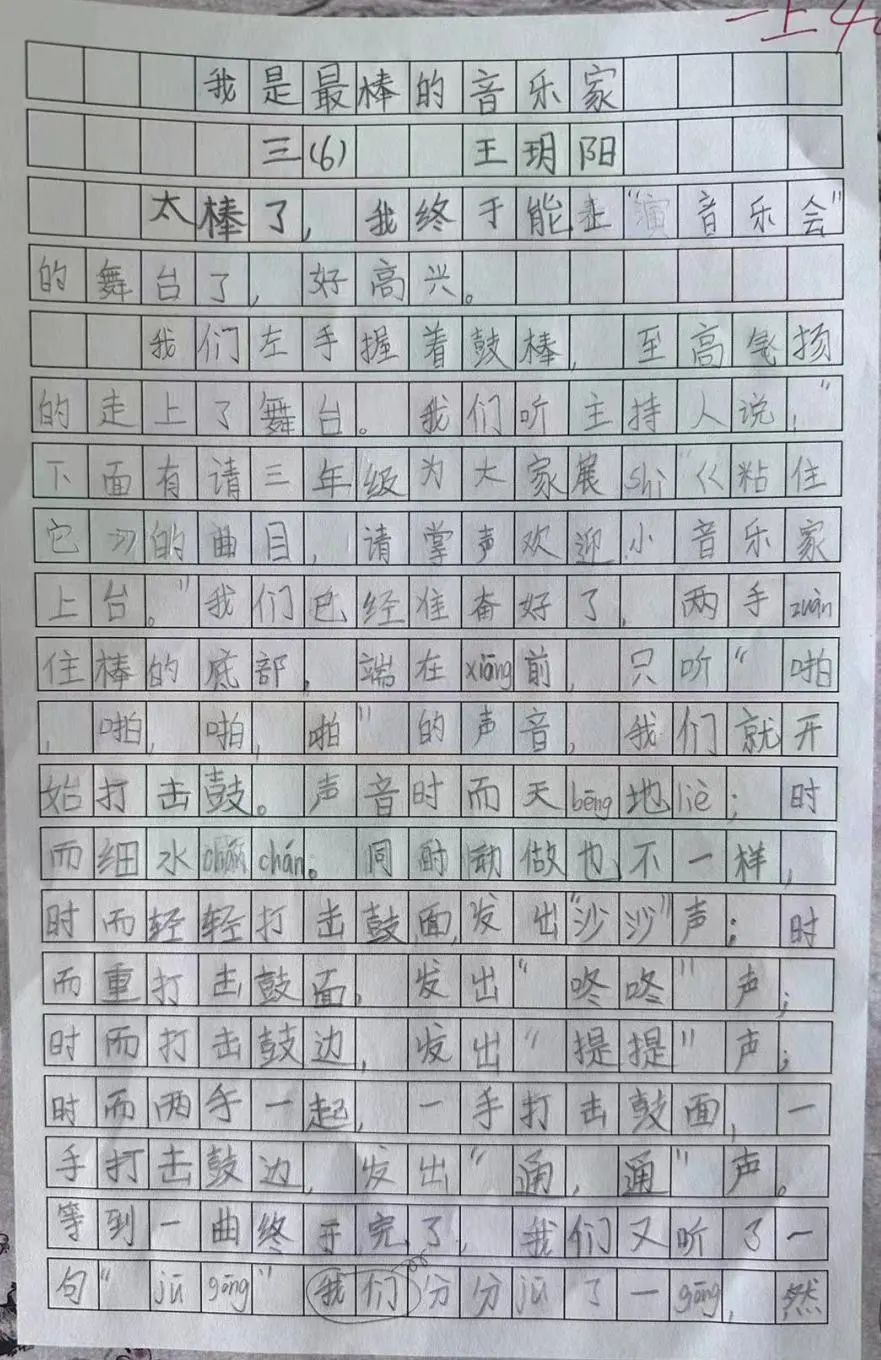 一上
我是最棒的音乐家
三(6) 王玥阳
太棒了，我终于能上“演音乐会”
的舞台了，好高兴。
我们左手握着鼓棒，至高气扬
的走上了舞台。我们听主持人说，“
下面有请三年级为大家展shì“《粘住
它》的曲目，请掌声欢迎小音乐家
上台。”我们已经准奋好了，两手zuàn
住棒的底部，端在xiōng前，只听“啪
，啪，啪，啪”的声音，我们就开
始打击鼓。声音时而天bēng地liè；时
而细水chán chán。同时动做也不一样，
时而轻轻打击鼓面，发出“沙沙”声；时
而重打击鼓面。发出“咚咚”声；
时而打击鼓边，发出“提提”声；
时而两手一起，一手打击鼓面，一
手打击鼓边，发出“通，通”声。
等到一曲终于完了，我们又听了一
句“jū gōng”我们分分jū了一gōng，然